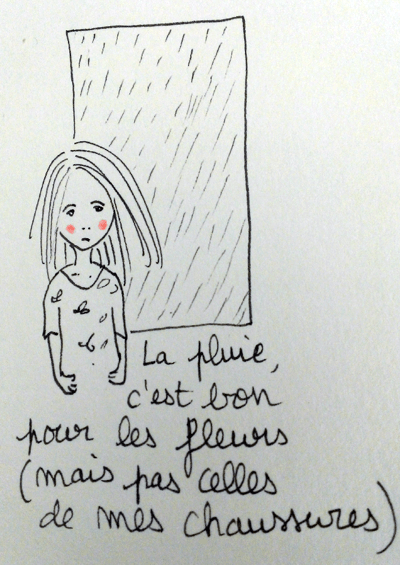 La pluie,
c'est bon
pour les fleurs
(mais pas celles
de mes chaussures)